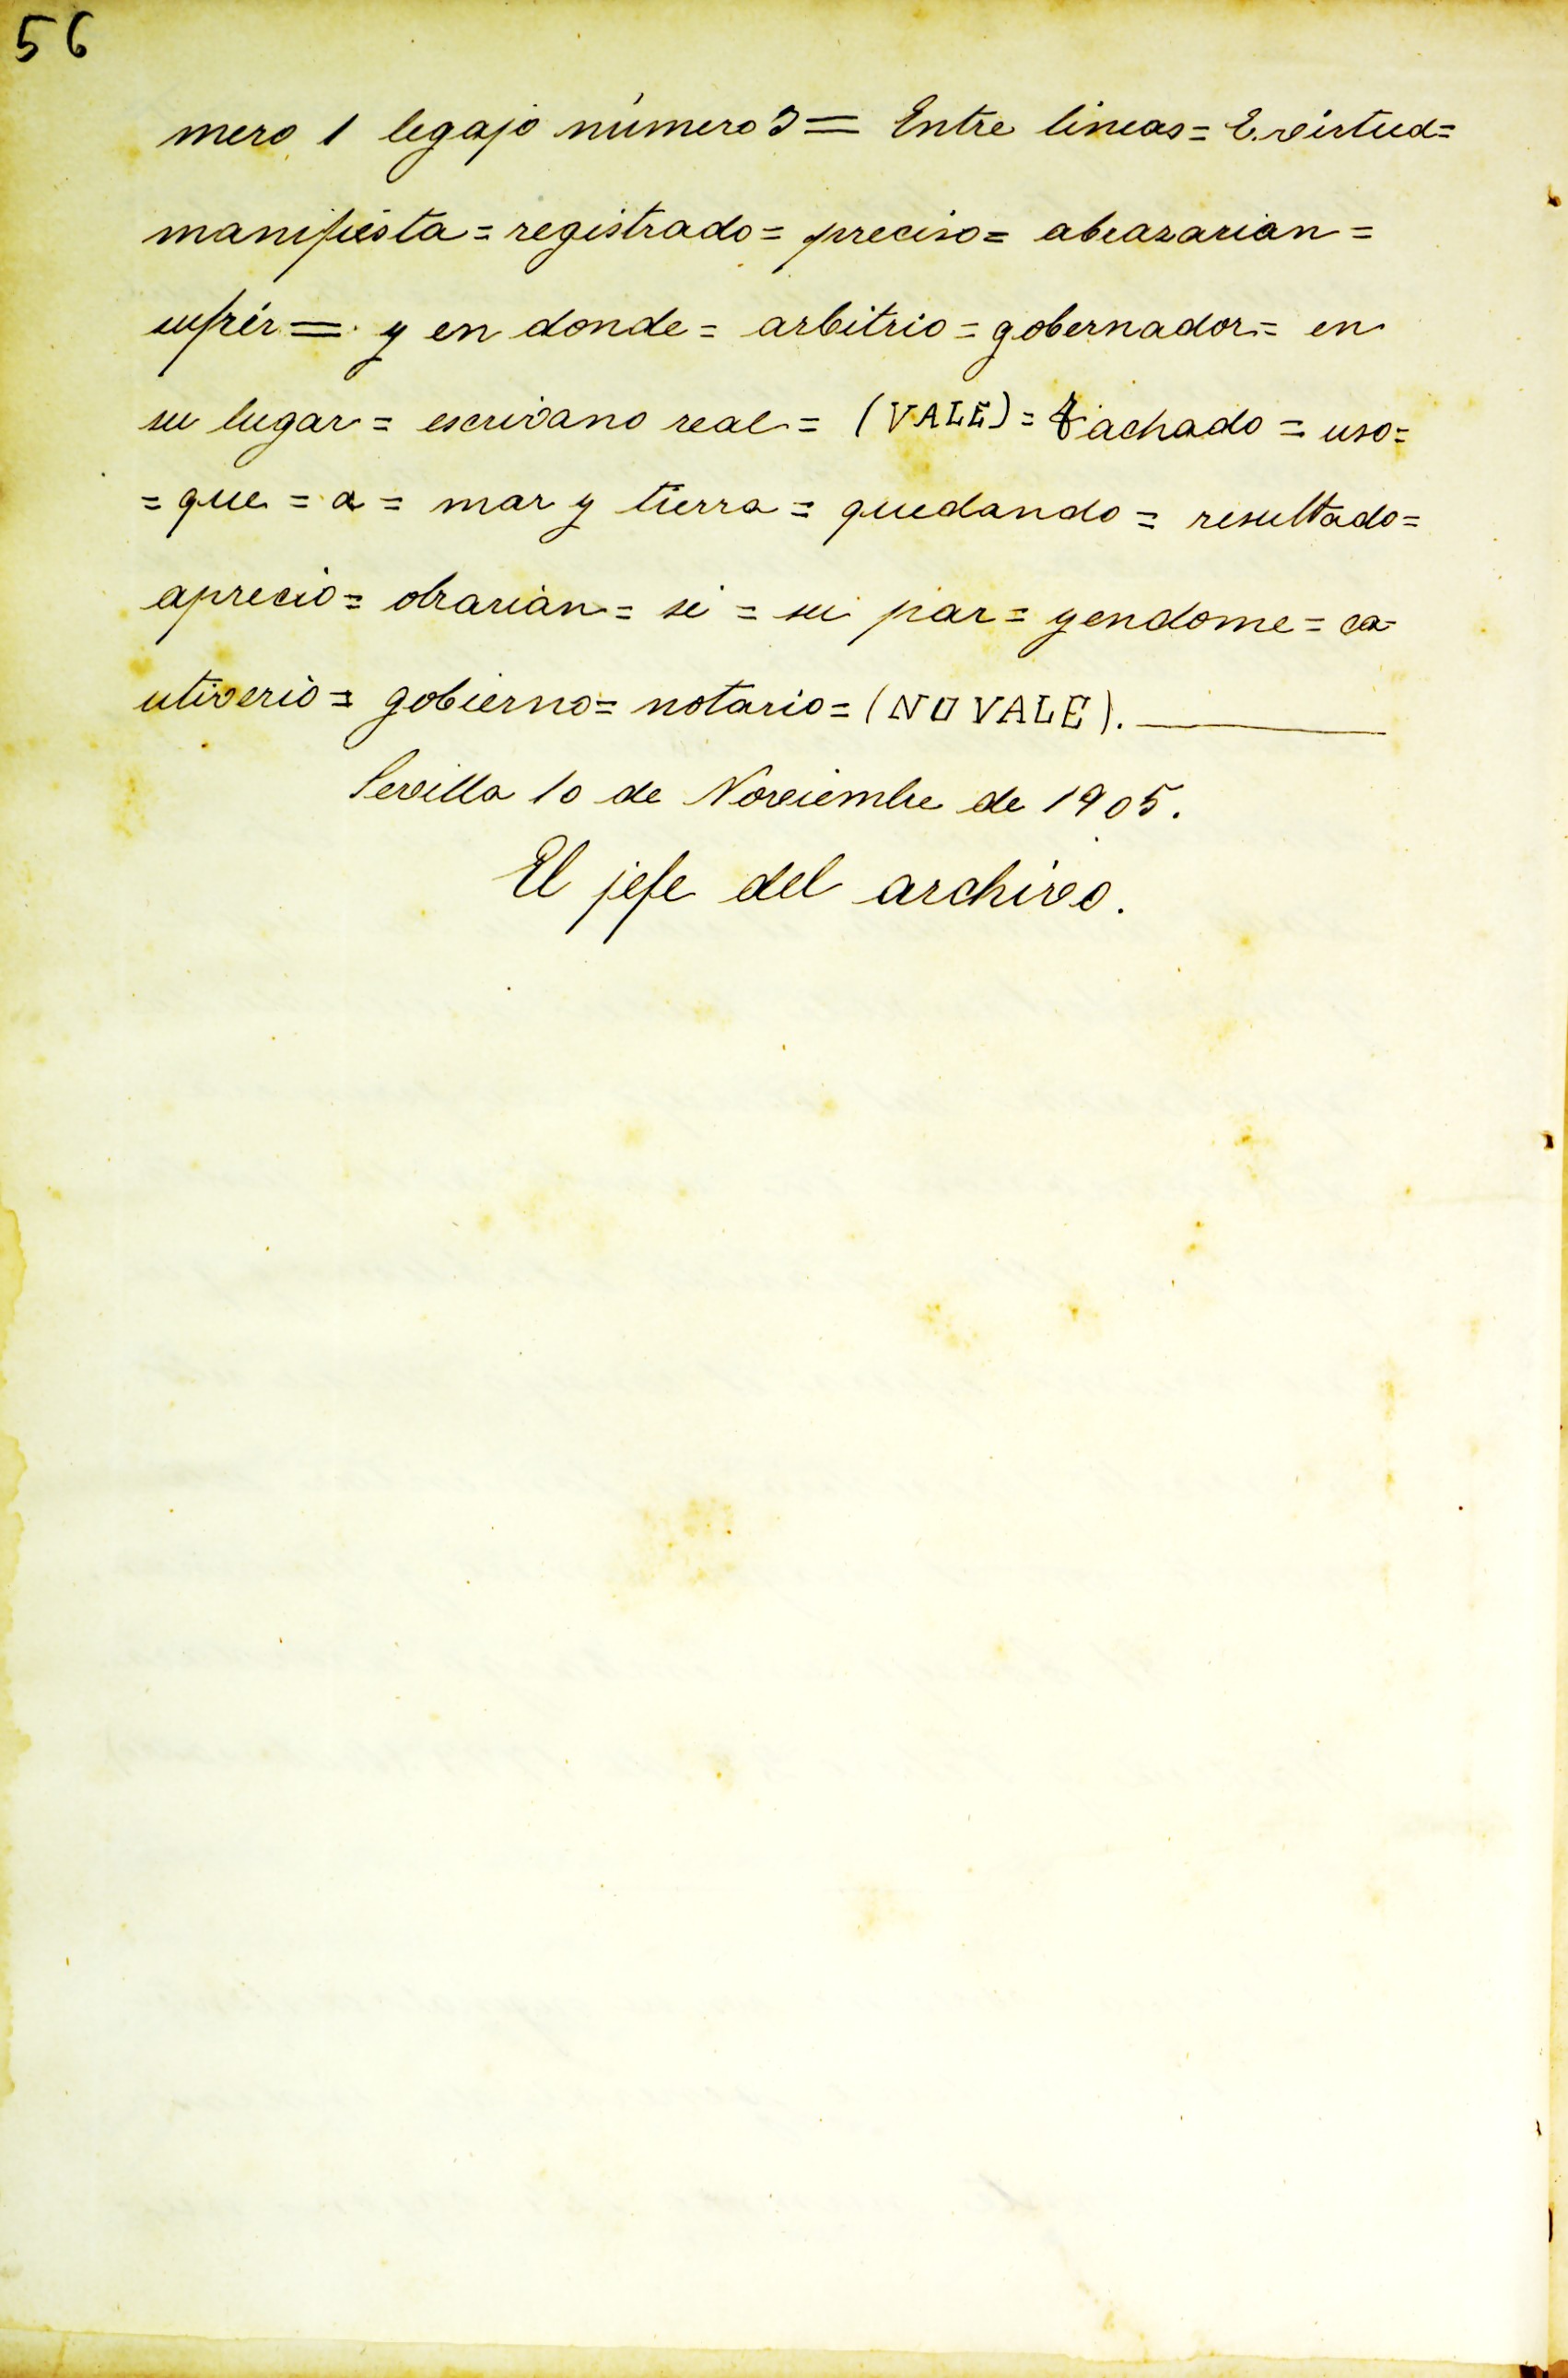 56
mero 1 legajo número 3 = Entre lineas = E. virtud =
manifiesta = registrado = preciso = abrazarian =
sufrir = y en donde = arbitrio = gobernador = en
su lugar = escrivano real = (VALE) = Tachado = uso =
= que = a = mar y tierra = quedando = resultado =
aprecio = obrarian = si = su par = yendome = ca-
utiverio = gobierno = notario = (NO VALE).
Sevilla 10 de Noviembre de 1905.
El jefe del archivo.